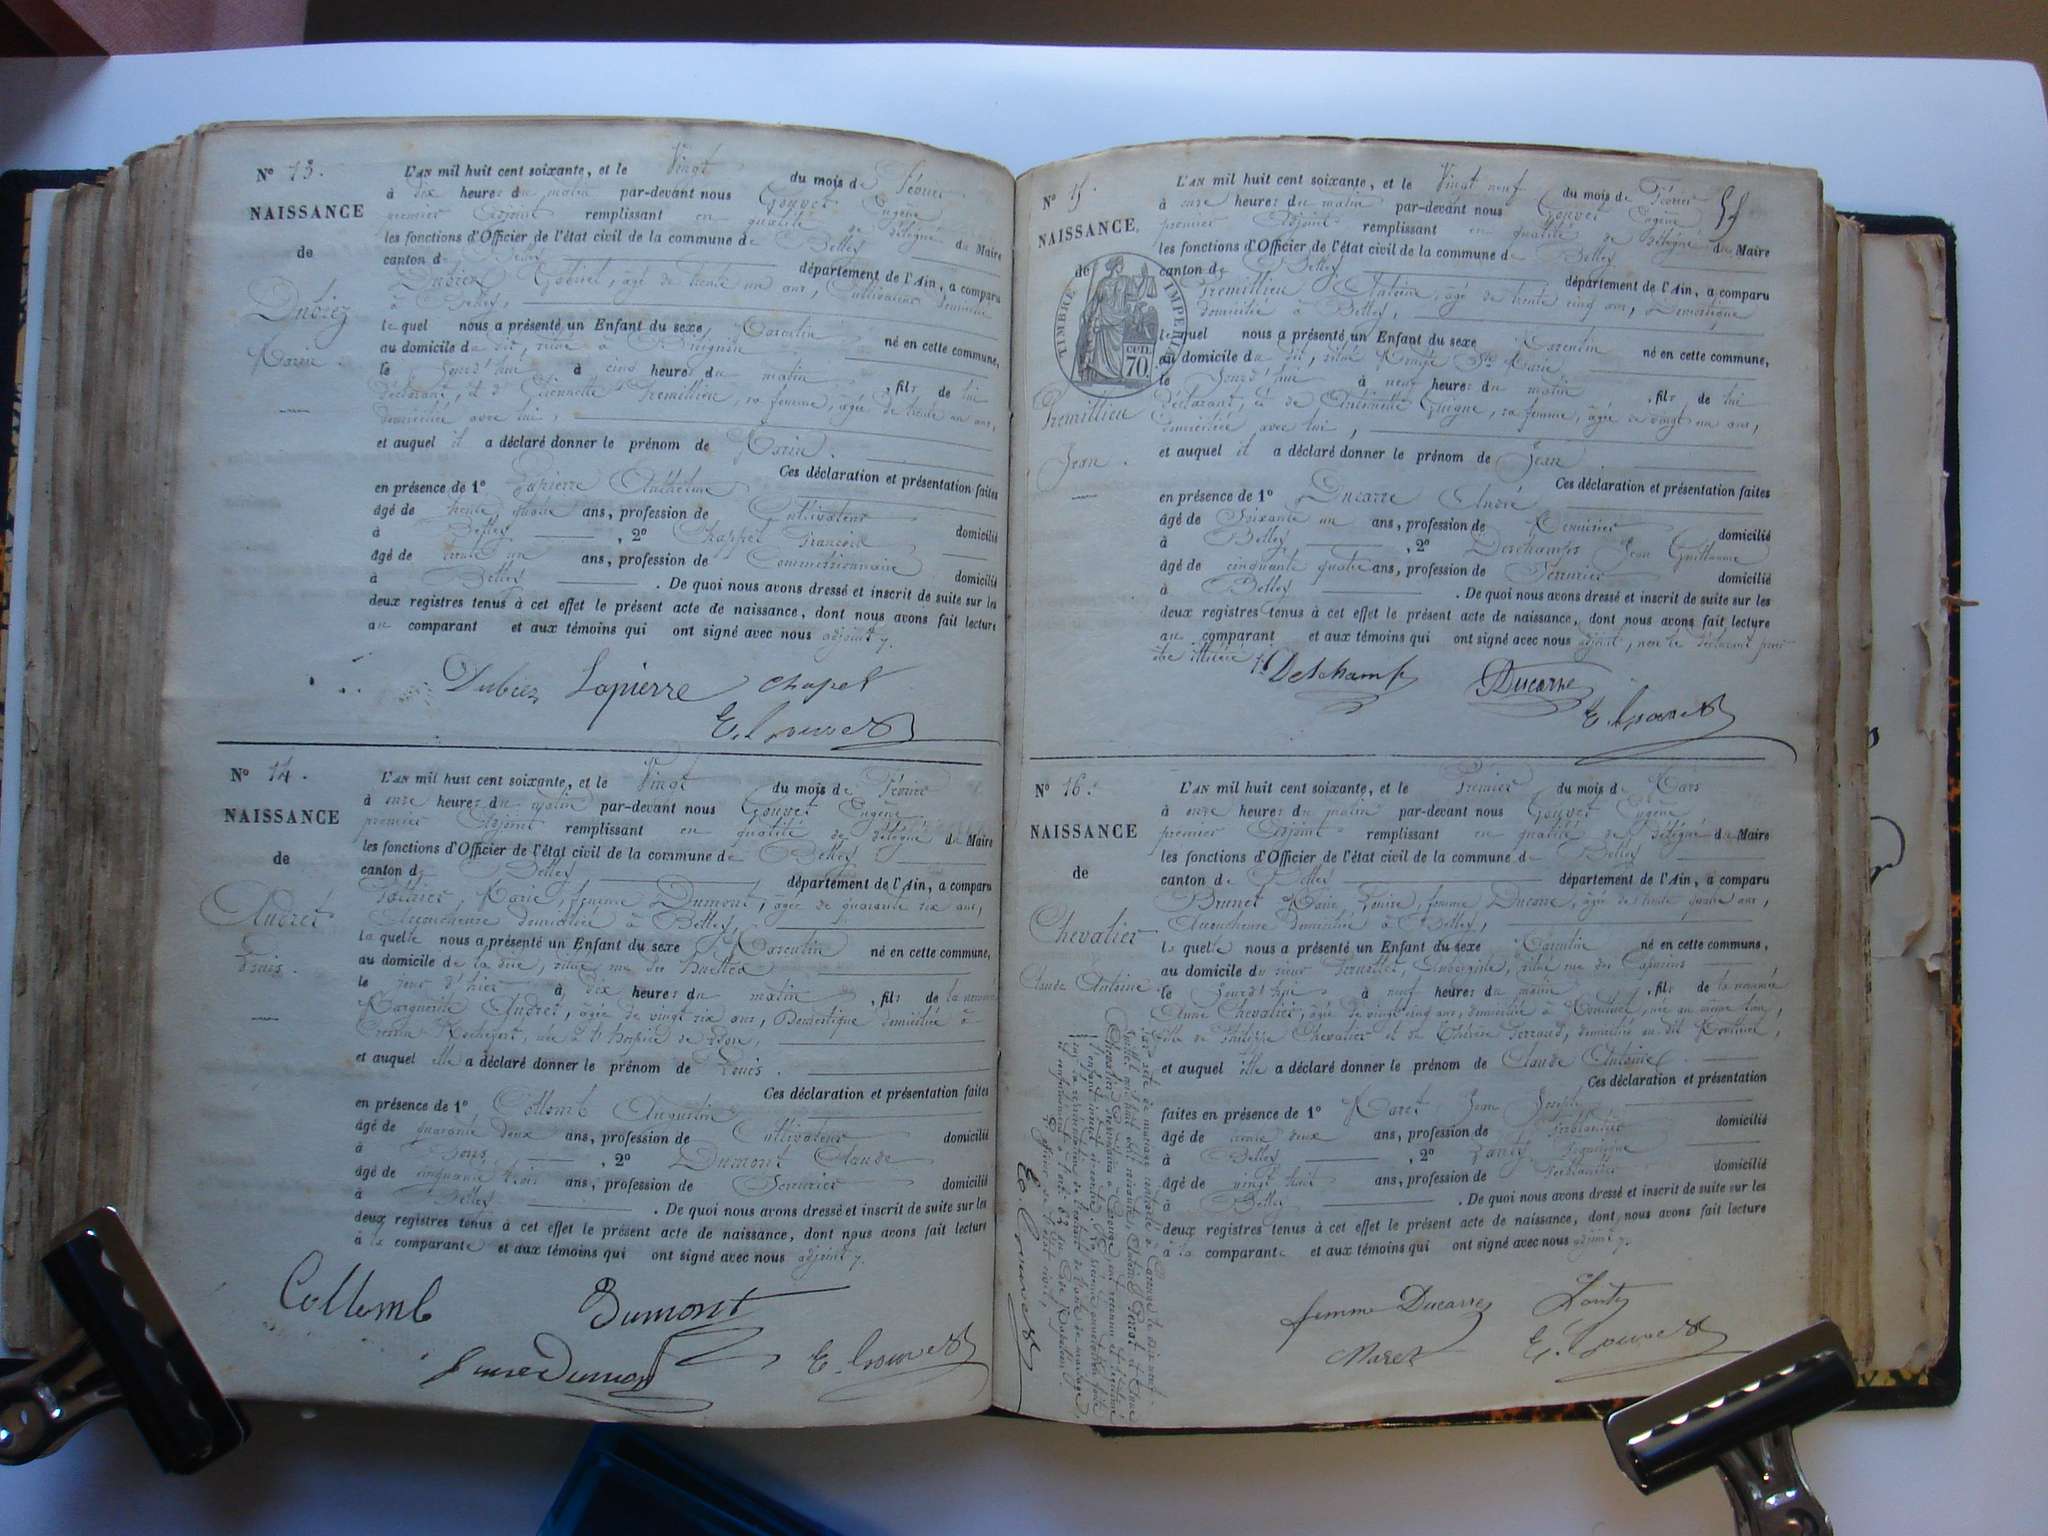 N° 13.
NAISSANCE
de
Dubiez
Marin.
L'AN mil huit cent soixante, et le Vingt du mois de Février
à dix heures du matin par-devant nous Gouvet Eugène
premier Adjoint remplissant en qualité de Délégué du Maire
les fonctions d'Officier de l'état civil de la commune de Belley
canton de Belley département de l'Ain, a comparu
Dubiez Gabriel, âgé de trente un ans, Cultivateur domicilié
à Belley,
lequel nous a présenté un Enfant du sexe Masculin né en cette commune,
au domicile du dit, situé à
le Jourd'hui à cinq heures du matin, fils de lui
déclarant, et d'Etiennette Premillieu, sa femme, âgée de trente un ans,
domiciliée avec lui,
et auquel il a déclaré donner le prénom de Marin.
Ces déclaration et présentation faites
en présence de 1° Lapierre Anthelme
âgé de trente quatre ans, profession de Cultivateur domicilié
à Belley, 2° Chappel François
âgé de trente un ans, profession de Commissionnaire domicilié
à Belley. De quoi nous avons dressé et inscrit de suite sur les
deux registres tenus à cet effet le présent acte de naissance, dont nous avons fait lecture
au comparant et aux témoins qui ont signé avec nous adjoint.
Dubiez Lapierre Chapel
E. Gouvet
N° 14.
NAISSANCE
de
Andret
Louis.
L'AN mil huit cent soixante, et le Vingt du mois de Février
à onze heures du matin par-devant nous Gouvet Eugène
premier Adjoint remplissant en qualité de Délégué du Maire
les fonctions d'Officier de l'état civil de la commune de Belley
canton de Belley département de l'Ain, a comparu
Marie, femme Dumont, âgée de quarante six ans,
Accoucheuse domiciliée à Belley,
laquelle nous a présenté un Enfant du sexe Masculin né en cette commune,
au domicile de la dite, situé rue des
le jour d'hier à dix heures du matin, fils de la nommée
Marguerite Andret, âgée de vingt six ans, Domestique domiciliée à
Rochefort, née à l'hospice de Lyon,
et auquel elle a déclaré donner le prénom de Louis.
Ces déclaration et présentation faites
en présence de 1° Collomb Augustin
âgé de quarante deux ans, profession de Cultivateur domicilié
à Bons, 2° Dumont Claude
âgé de cinquante trois ans, profession de Serrurier domicilié
à Belley. De quoi nous avons dressé et inscrit de suite sur les
deux registres tenus à cet effet le présent acte de naissance, dont nous avons fait lecture
à la comparante et aux témoins qui ont signé avec nous adjoint.
Collomb Dumont
Dumont E. Gouvet
N° 15.
NAISSANCE
de
TIMBRE IMPERIAL
CEN. 70.
Premillieu
Jean.
L'AN mil huit cent soixante, et le Vingt neuf du mois de Février
à onze heures du matin par-devant nous Gouvet Eugène
premier Adjoint remplissant en qualité de Délégué du Maire
les fonctions d'Officier de l'état civil de la commune de Belley
canton de Belley département de l'Ain, a comparu
Premillieu Antoine, âgé de trente cinq ans, Domestique
domicilié à Belley,
lequel nous a présenté un Enfant du sexe Masculin né en cette commune,
au domicile du dit, situé Ste Marie
le Jourd'hui à neuf heures du matin, fils de lui
déclarant, et de Antoinette Guigue, sa femme, âgée de vingt un ans,
domiciliée avec lui,
et auquel il a déclaré donner le prénom de Jean
Ces déclaration et présentation faites
en présence de 1° Ducarre André
âgé de Soixante un ans, profession de Menuisier domicilié
à Belley, 2° Deschamps Jean Guillaume
âgé de cinquante quatre ans, profession de Serrurier domicilié
à Belley. De quoi nous avons dressé et inscrit de suite sur les
deux registres tenus à cet effet le présent acte de naissance, dont nous avons fait lecture
au comparant et aux témoins qui ont signé avec nous adjoint, non le déclarant pour
être illitéré.
Deschamps Ducarre
E. Gouvet
N° 16.
NAISSANCE
de
Chevalier
Claude Antoine
L'AN mil huit cent soixante, et le Premier du mois de Mars
à onze heures du matin par-devant nous Gouvet Eugène
premier Adjoint remplissant en qualité de Délégué du Maire
les fonctions d'Officier de l'état civil de la commune de Belley
canton de Belley département de l'Ain, a comparu
Brunet Marie Louise, femme Ducarre, âgée de trente quatre ans,
Accoucheuse domiciliée à Belley,
laquelle nous a présenté un Enfant du sexe Masculin né en cette commune,
au domicile du sieur Aubergiste, situé rue des Capucins
le Jourd'hui à neuf heures du matin, fils de la nommée
Anne Chevalier, âgée de vingt cinq ans, domiciliée à née au même lieu,
fille de Philippe Chevalier et de Thérèse Ferrand, domiciliés au dit
et auquel elle a déclaré donner le prénom de Claude Antoine.
Ces déclaration et présentation
faites en présence de 1° Maret Jean Joseph
âgé de trente deux ans, profession de Ferblantier domicilié
à Belley, 2° Lanty Dominique
âgé de vingt huit ans, profession de Ferblantier domicilié
à Belley. De quoi nous avons dressé et inscrit de suite sur les
deux registres tenus à cet effet le présent acte de naissance, dont nous avons fait lecture
à la comparante et aux témoins qui ont signé avec nous adjoint.
femme Ducarre Lanty
Maret E. Gouvet
Par acte de mariage
E. Gouvet